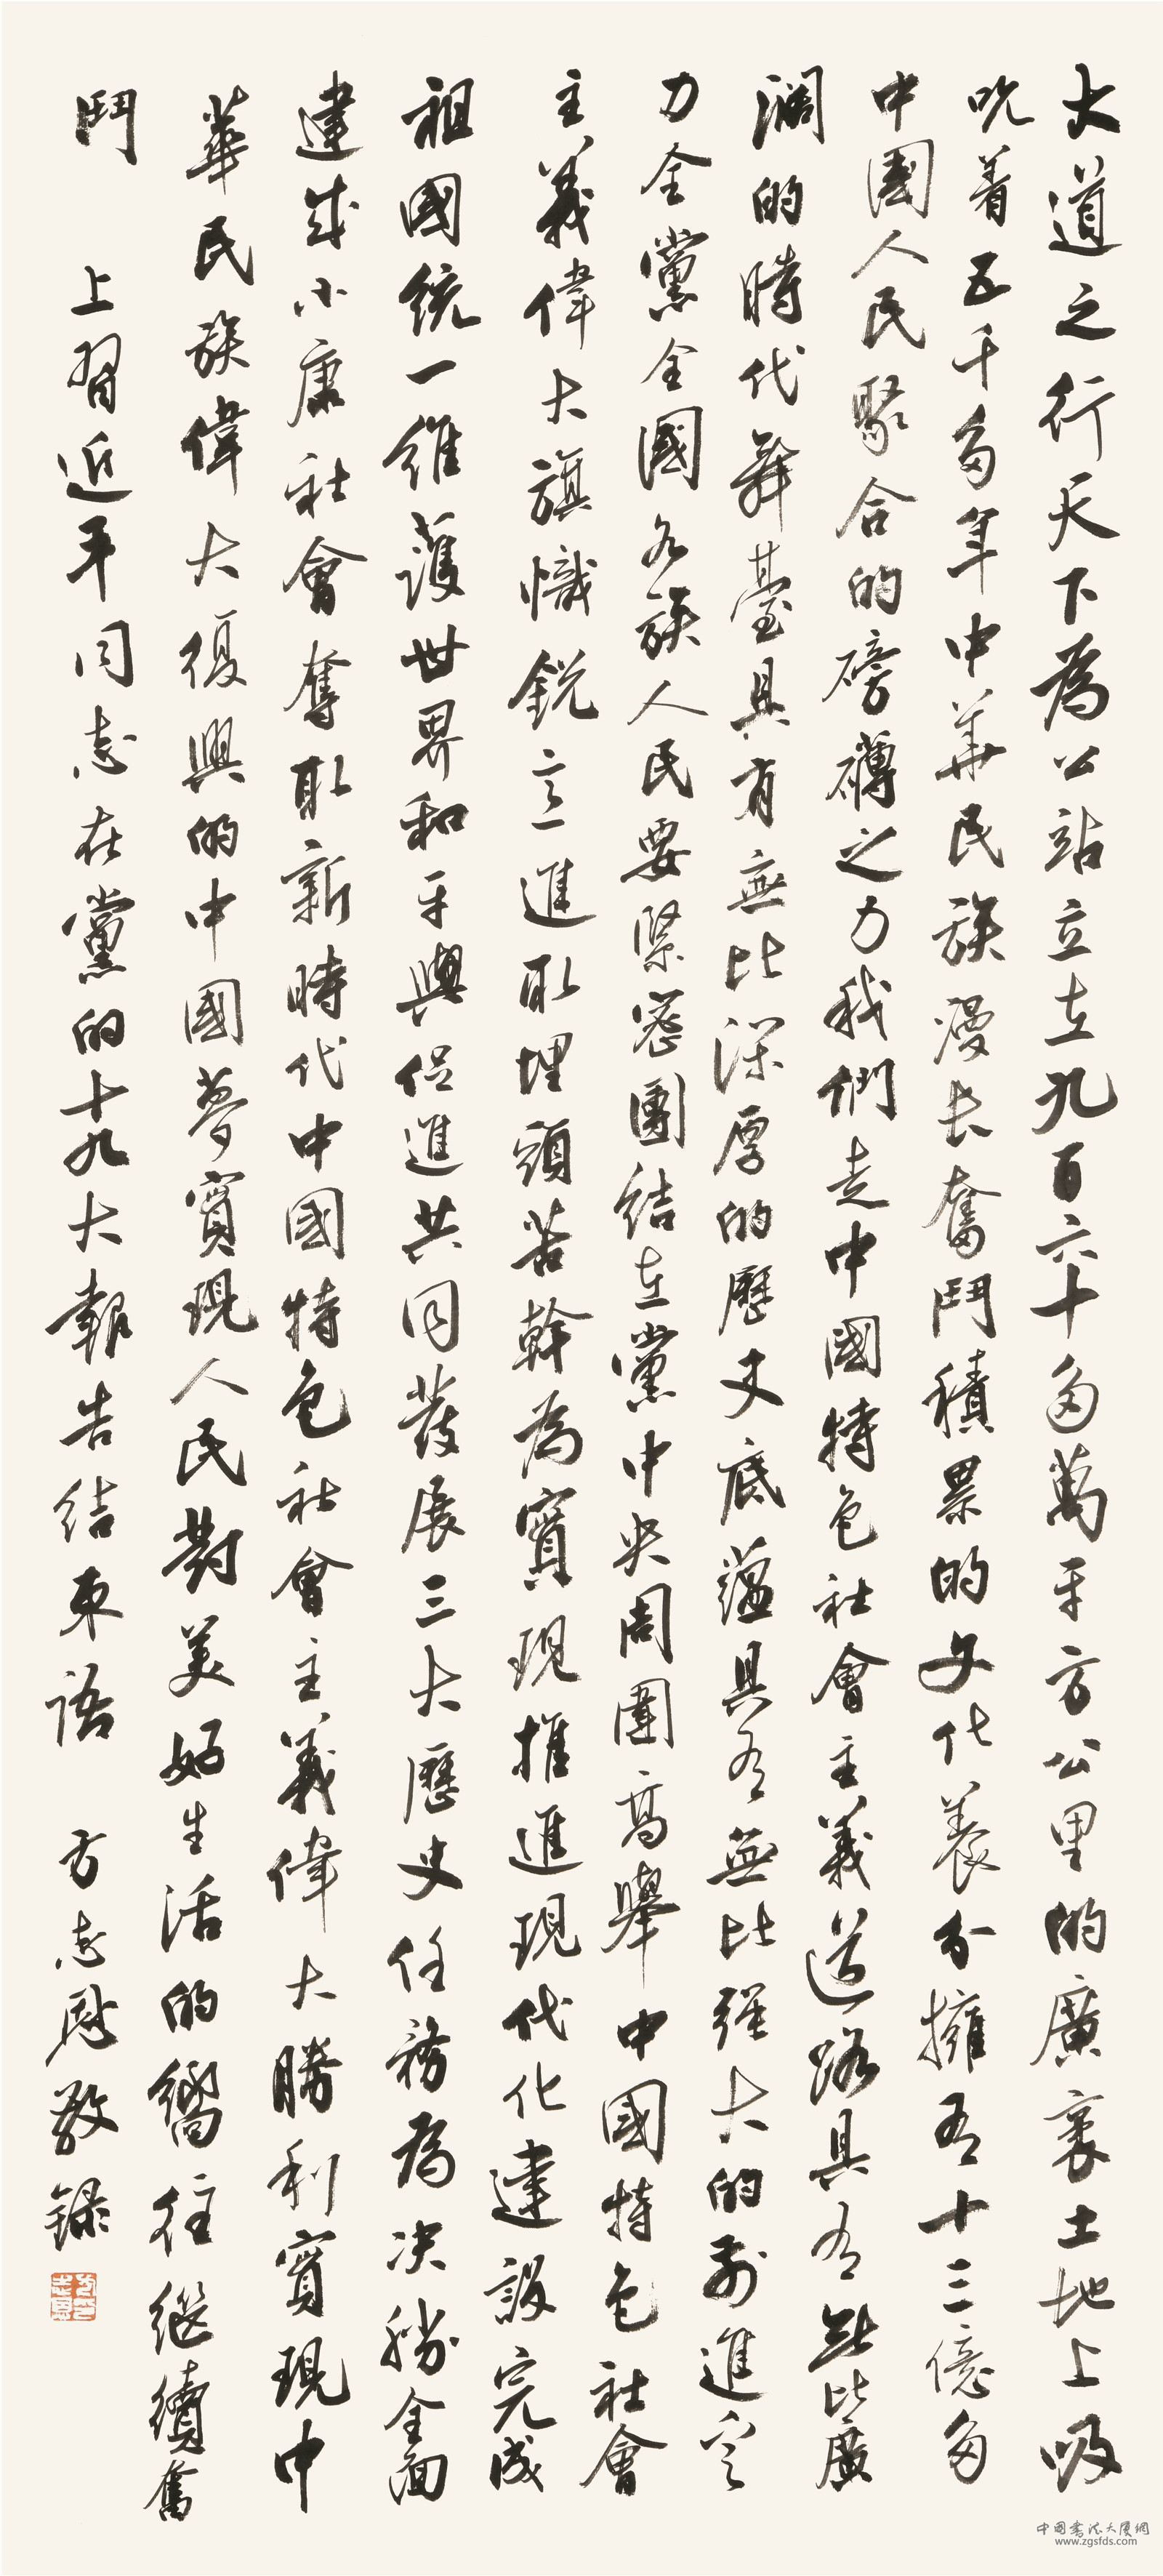 大道之行天下為公站立在九百六十多萬平方公里的廣袤土地上吸
吮着五千多年中華民族漫长奮鬥積累的文化養分擁有十三億多
中國人民聚合的磅礴之力我們走中國特色社會主義道路具有無比廣
濶的時代舞臺具有無比深厚的歷史底蕴具有無比强大的前進定
力全黨全國各族人民要緊密團結在黨中央周圍高舉中國特色社會
主義偉大旗幟鋭意進取埋頭苦幹為實現推進現代化建設完成
祖國統一維護世界和平與促進共同發展三大歷史任務為决勝全面
建成小康社會奪取新時代中國特色社會主義偉大勝利實現中
華民族偉大復興的中國夢實現人民對美好生活的嚮往继續奮
鬥 上習近平同志在黨的十九大報告结束语 方志恩敬録
中國書法大廈網
www.zgsfds.com